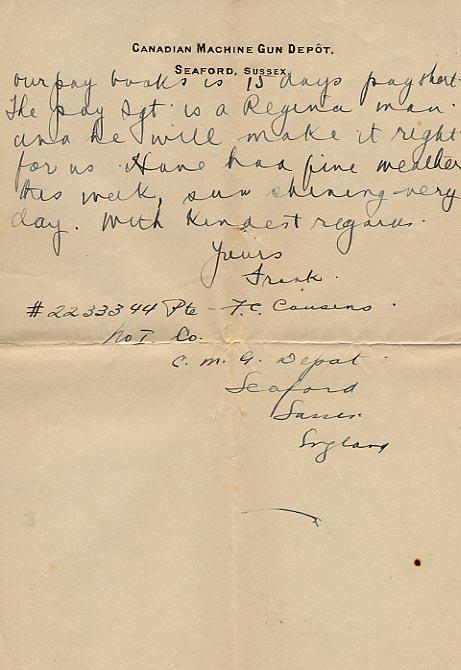 CANADIAN MACHINE GUN DEPÔT,
SEAFORD, SUSSEX,
our pay books is 15 days pay short.
The pay Sgt. is a Regina man.
and he will make it right
for us. Have had fine weather
this week, sun shining every
day. With Kindest regards.
Yours
Frank.
#2233344 Pte F.C. Cousins.
No 1 Co.
C. M. G. Depot
Seaford
Sussex
England